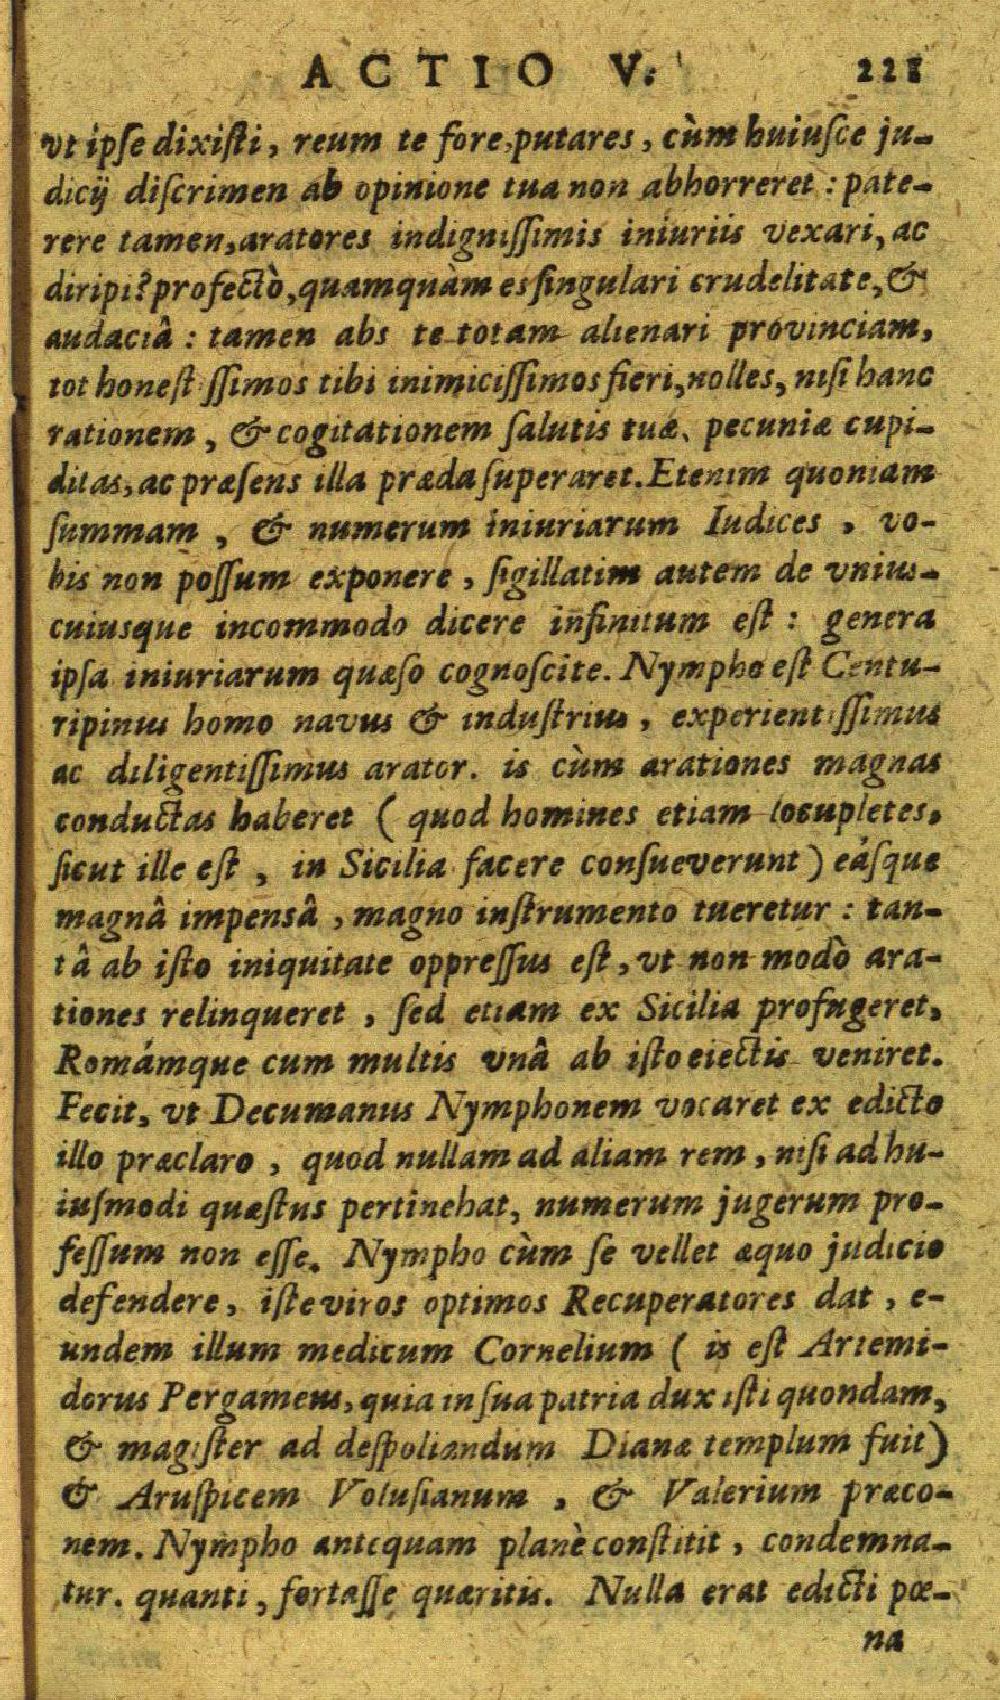 ACTIO V. 221
vt ipse dixisti, reum te fore, putares, cùm huiusce ju-
dicij discrimen ab opinione tua non abhorreret : pate-
rere tamen, aratores indignissimis iniuriis vexari, ac
diripi? profectò, quamquàm es singulari crudelitate, &
audaciâ : tamen abs te totam alienari provinciam,
tot honestissimos tibi inimicissimos fieri, nolles, nisi hanc
rationem, & cogitationem salutis tuæ, pecuniæ cupi-
ditas, ac præsens illa præda superaret. Etenim quoniam
summam, & numerum iniuriarum Iudices, vo-
bis non possum exponere, sigillatim autem de vnius-
cuiusque incommodo dicere infinitum est : genera
ipsa iniuriarum quæso cognoscite. Nympho est Centu-
ripinus homo navus & industrius, experientissimus
ac diligentissimus arator. is cùm arationes magnas
conductas haberet ( quod homines etiam locupletes,
sicut ille est, in Sicilia facere consueverunt ) eásque
magnâ impensâ, magno instrumento tueretur : tan-
tâ ab isto iniquitate oppressus est, vt non modò ara-
tiones relinqueret, sed etiam ex Sicilia profugeret,
Romámque cum multis vnâ ab isto eiectis veniret.
Fecit, vt Decumanus Nymphonem vocaret ex edicto
illo præclaro, quod nullam ad aliam rem, nisi ad hu-
iusmodi quæstus pertinebat, numerum jugerum pro-
fessum non esse. Nympho cùm se vellet æquo judicio
defendere, iste viros optimos Recuperatores dat, e-
undem illum medicum Cornelium ( is est Artemi-
dorus Pergameus, quia in sua patria dux isti quondam,
& magister ad despoliandum Dianæ templum fuit )
& Aruspicem Volusianum, & Valerium præco-
nem. Nympho antequam planè constitit, condemna-
tur. quanti, fortasse quæritis. Nulla erat edicti pœ-
na